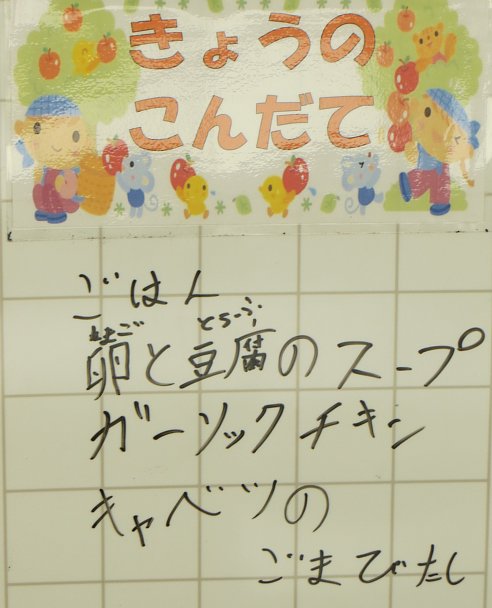 きょうの
こんだて
ごはん
たまご とうふ
卵と豆腐のスープ
ガーリックチキン
キャベツの
ごまびたし